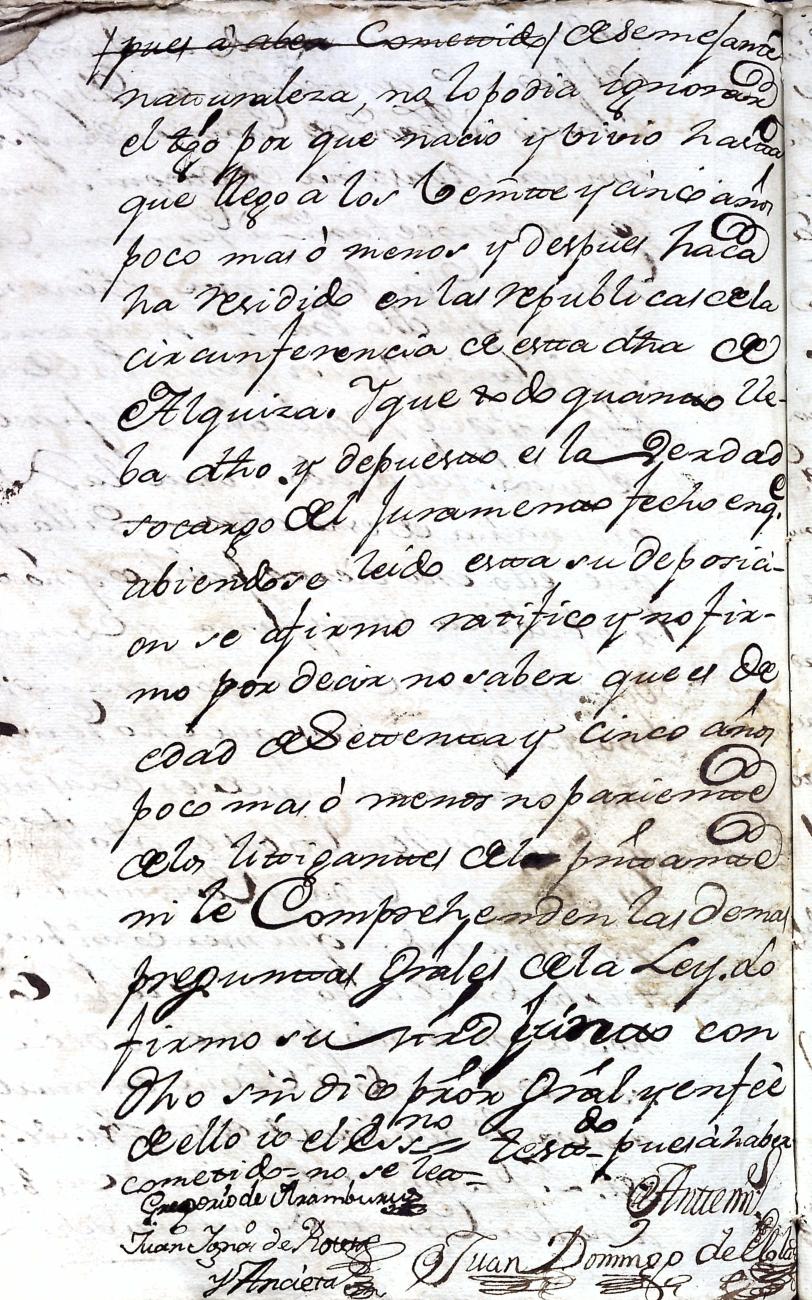 pues à aber Cometido desemejante
natturaleza, no lo podia ignorar
el tgo por que nacio y vivio hasta
que llego à los Veintte y cinco años
poco mas ò menos y despues haca
ha residido en las republicas de la
circunferencia de estta dha de
Alquiza. Y que todo quanto lle-
ba dho y depuestto es la Verdad
socargo del Juramento fecho en q.e
abiendose leido estta su deposici-
on se afirmo ratifico y no fir-
mo por decir no saber que es de
edad de Settentta y cinco años
poco mas ò menos no parientte
de los littiganttes del prstantte
ni le Comprehenden las demas
preguntas Grales de la Ley. do
firmo su mrd juntto con
dho sindico pror Gral y en feè
de ello io el Essno testdo pues à haber
cometido no se lea
Gregorio de Aramburu
Anttemi
Juan Ignã de
y Ancieta
Juan Domingo de